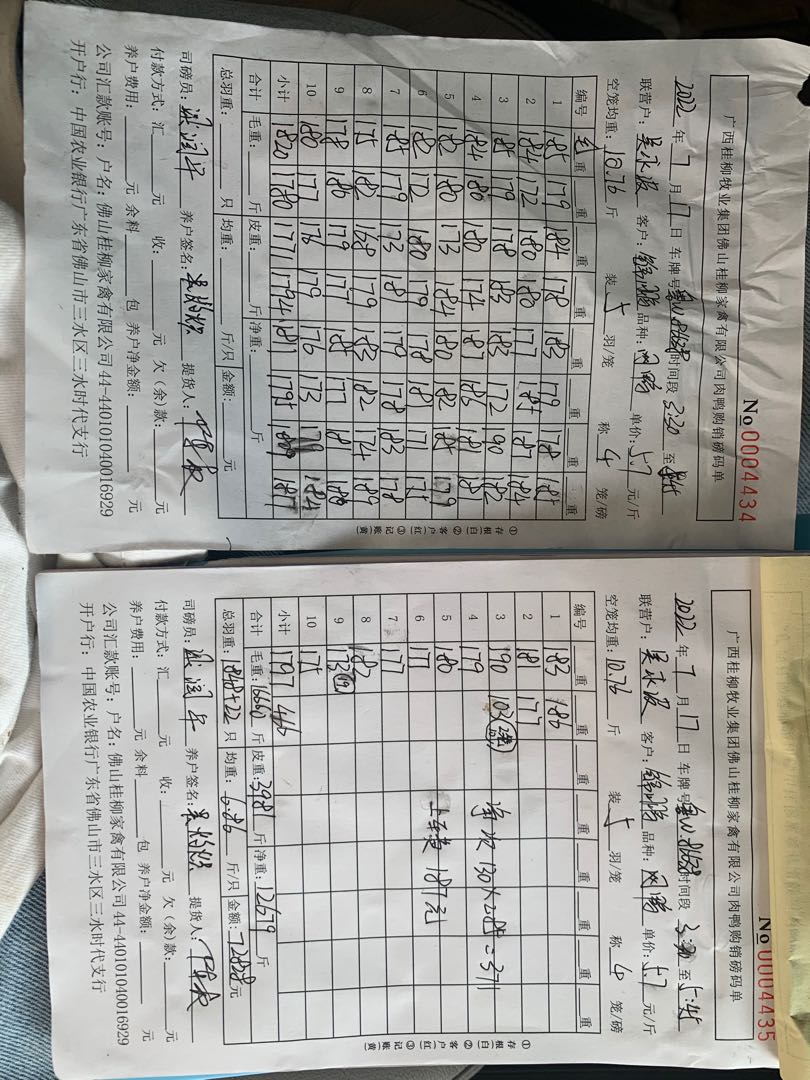 广西桂柳牧业集团佛山桂柳家禽有限公司肉鸭购销磅码单
No 0004434
2022 年 7 月 17 日 车牌号: 时间段 3:30 至
联营户: 吴永波 客户: 品种: 单价: 5.7 元/斤
空笼均重: 10.76 斤 装 5 羽/笼 称 4 笼/磅
编号 毛重 重 重 重 重 重 重 重
1 185 179 184 178 183 179 178 185
2 184 172 180 180 177 185 187 184
3 185 179 178 183 183 172 190 182
4 184 180 180 174 187 186 181 181
5 182 180 173 184 180 182 185 179
6 182 172 180 179 178 181 171 175
7 185 179 173 181 179 178 183 178
8 175 182 168 179 183 182 174 189
9 178 180 179 177 185 177 181 180
10 180 177 176 179 176 173 179 184
小计 1820 1780 1771 1794 1811 1795 1817
合计 毛重: 斤 皮重: 斤 净重: 斤
总羽重: 只 均重: 斤/只 金额: 元
司磅员: 养户签名: 提货人:
付款方式: 汇 元 收: 元 欠(余)款: 元
养户费用: 元 余料 包 养户净金额: 元
公司汇款账号: 户名: 佛山桂柳家禽有限公司 44-440101040016929
开户行: 中国农业银行广东省佛山市三水区三水时代支行
①存根(白) ②客户(红) ③记账(黄)
广西桂柳牧业集团佛山桂柳家禽有限公司肉鸭购销磅码单
No 0004435
2022 年 7 月 17 日 车牌号: 时间段 3:30 至 5:45
联营户: 吴永波 客户: 品种: 单价: 5.7 元/斤
空笼均重: 10.76 斤 装 5 羽/笼 称 4 笼/磅
编号 重 重 重 重 重 重 重 重
1 183 186
2 181 177
3 190 103
4 179
5 180
6 177
7 177
8 182
9 173
10 175
371
上车费 187元
小计 1797 466
合计 毛重: 16660 斤 皮重: 3981 斤 净重: 12679 斤
总羽重: 1848+22 只 均重: 6.86 斤/只 金额: 元
司磅员: 养户签名: 提货人:
付款方式: 汇 元 收: 元 欠(余)款: 元
养户费用: 元 余料 包 养户净金额: 元
公司汇款账号: 户名: 佛山桂柳家禽有限公司 44-440101040016929
开户行: 中国农业银行广东省佛山市三水区三水时代支行
①存根(白) ②客户(红) ③记账(黄)